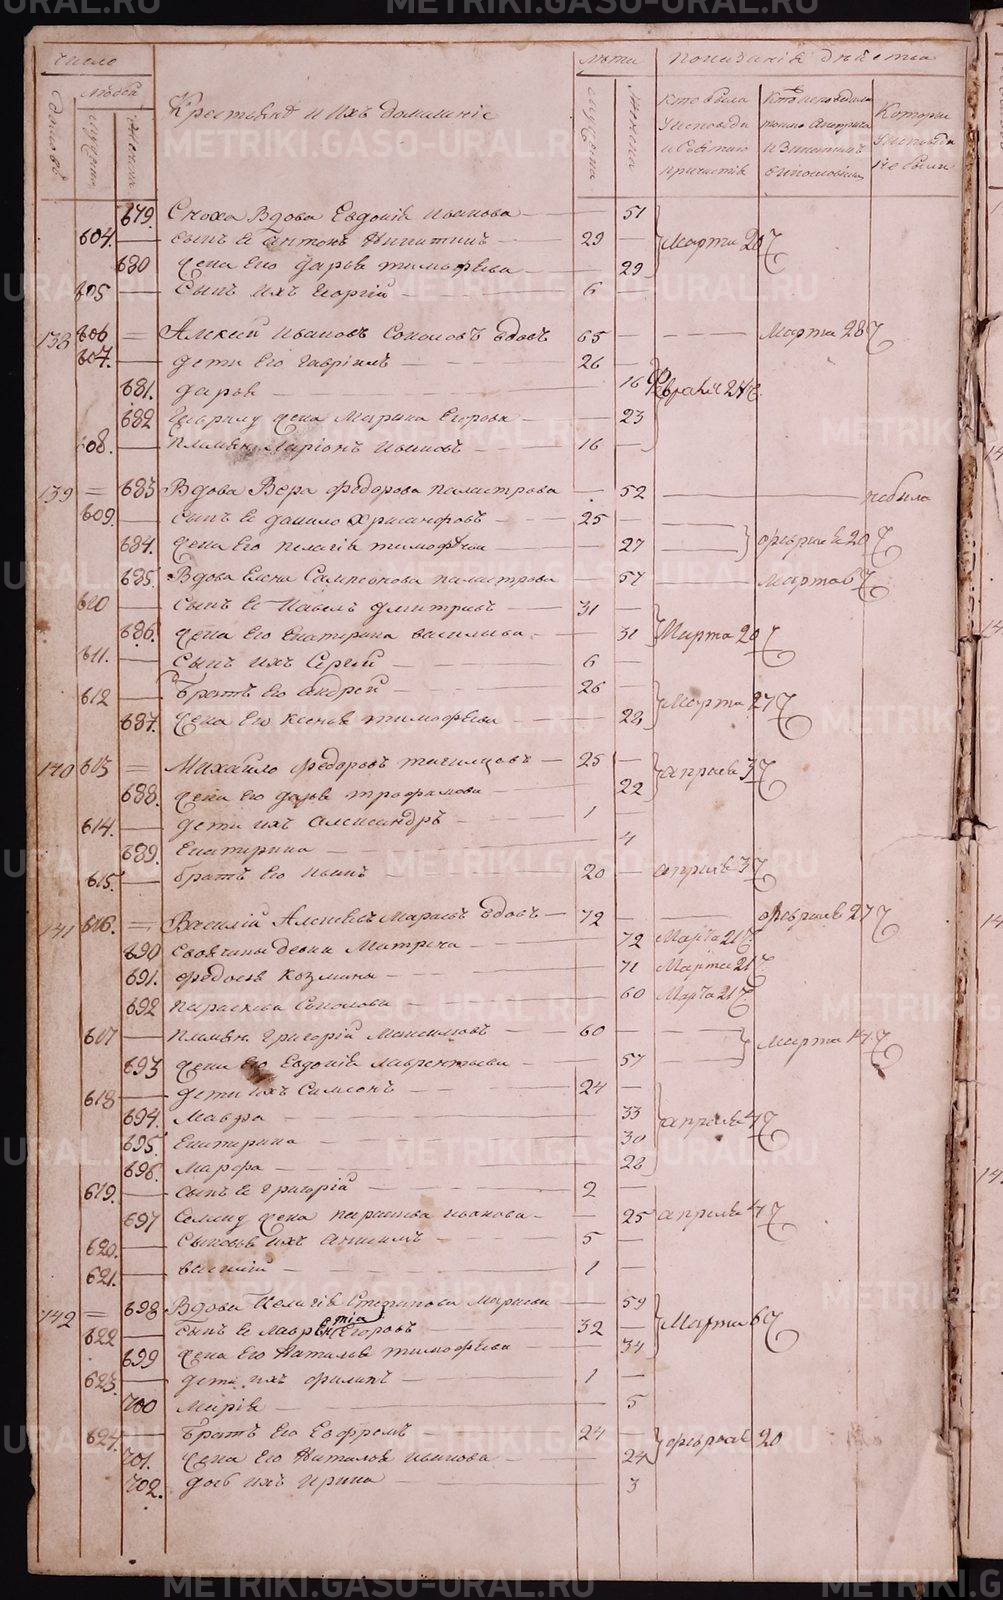 число лѣта показаніе дѣйства
домовъ людей мужеска женска Крестьяне и Ихъ домашніе мужеска женска кто были у исповѣди и Святаго причастія Кто исповѣдался токмо а Которые у исповѣди не были
679. Сноха Вдова Евдокія Иванова — 51
604. Сынъ Ея Антонъ Никитинъ — 29 — Марта 20
680 жена Его Дарья тимофѣева — 29
605 Сынъ ихъ Георгій — 6
138 606 Алексѣй Ивановъ Соколовъ вдовъ 65 — Марта 28
607. дети Его Гаврiилъ — 26 —
681. Дарья — 16 Февраля 24
682 Гаврилу жена Марина Егорова — 23
608. племян. Ларіонъ Ивановъ — 16 —
139 683 Вдова Вера Федорова палистрова — 52 — небыла
609. Сынъ Ея Данило Хрисанфовъ — 25 —
684. жена Его пелагія тимофѣева — 27 — февраля 20
685 Вдова Елена Сампсонова палистрова — 57 — Марта 6
610 Сынъ Ея Павелъ Дмитріевъ — 31 —
686. жена Его Екатерина васильева — 31 Марта 20
611. Сынъ ихъ Сергій — 6 —
612 Братъ Его Андрей — 26 — Марта 27
687. жена Его Ксенья тимофѣева — 28
140 613 Михайло Федоровъ тагильцовъ — 25 — апреля 3
688. жена Его дарья трофимова — 22
614. дети ихъ александръ — 1 —
689. Екатерина — 4
615. братъ Его Иванъ — 20 — апреля 3
141 616. Василій Алексѣевъ Марьевъ вдовъ — 72 — февраля 27
690 Своячины девки Матрена — 72 Марта 21
691. федосья Козмина — 71 Марта 21
692 параскева Соколова — 60 Марта 21
617 племян. григорій Максимовъ — 60 — Марта 14
693 жена Его Евдокія лаврентьева — 57
618 дети ихъ Симеонъ — 24 —
694. Мавра — 33 апреля 4
695. Екатерина — 30
696. Марфа — 28
619. сынъ Ея григорій — 2 —
697 Семену жена параскева иванова — 25 апреля 4
620. Сыновья ихъ Анисимъ — 5 —
621. василій — 1 —
142 698 Вдова Пелагія Степанова Марьева — 59
622 Сынъ Ея Лаврентiа Егоровъ — 32 — Марта 6
699 жена Его Наталья тимофѣева — 34
623. дети ихъ филипъ — 1 —
700 Марія — 5
624. Братъ Его Ефремъ — 24 — февраля 20
701. жена Его Наталья иванова — 24
702. дочь ихъ Ирина — 3
METRIKI.GASO-URAL.RU